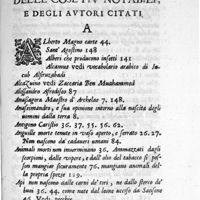 DELLE COSE PIV NOTABILI,
E DEGLI AVTORI CITATI
A
ALberto Magno carte 44.
Sant' Agostino 148
Albori che producono insetti 141
Alcamus vedi vocabolario arabico di Ia-
cob Alfiruzabadi
Alcazuino vedi Zaccaria Ben Muhammed
Alessandro Afrodiseo 87
Anassagora Maestro d' Archelao 7. 148.
Anassimandro, e sua opinione intorno alla nascita degli
uomini dalla terra 8.
Antigono Caristio 36. 37. 55. 56. 62.
Anguille morte tenute in vaso aperto, e serrato 26. 27.
Non nascono da cadaueri umani 84.
Animali morti non inuerminano 36. Ammazzati dagli
scorpioni, dalle vipere, e dall' olio del tabacco si pos-
son mangiar sicuramente 76. mangiano animali del-
la propria spezie 119.
Api non nascono dalle carni de' tori, ne dallo sterco de'
buoi 36. 44. come nate dal leone ucciso da Sansone
46. Vedi pecchie